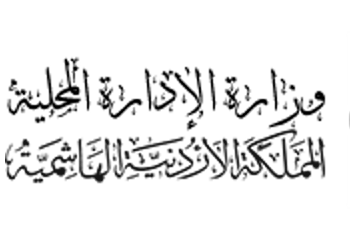 وزارة الإدارة المحلية
المملكة الأردنية الهاشمية